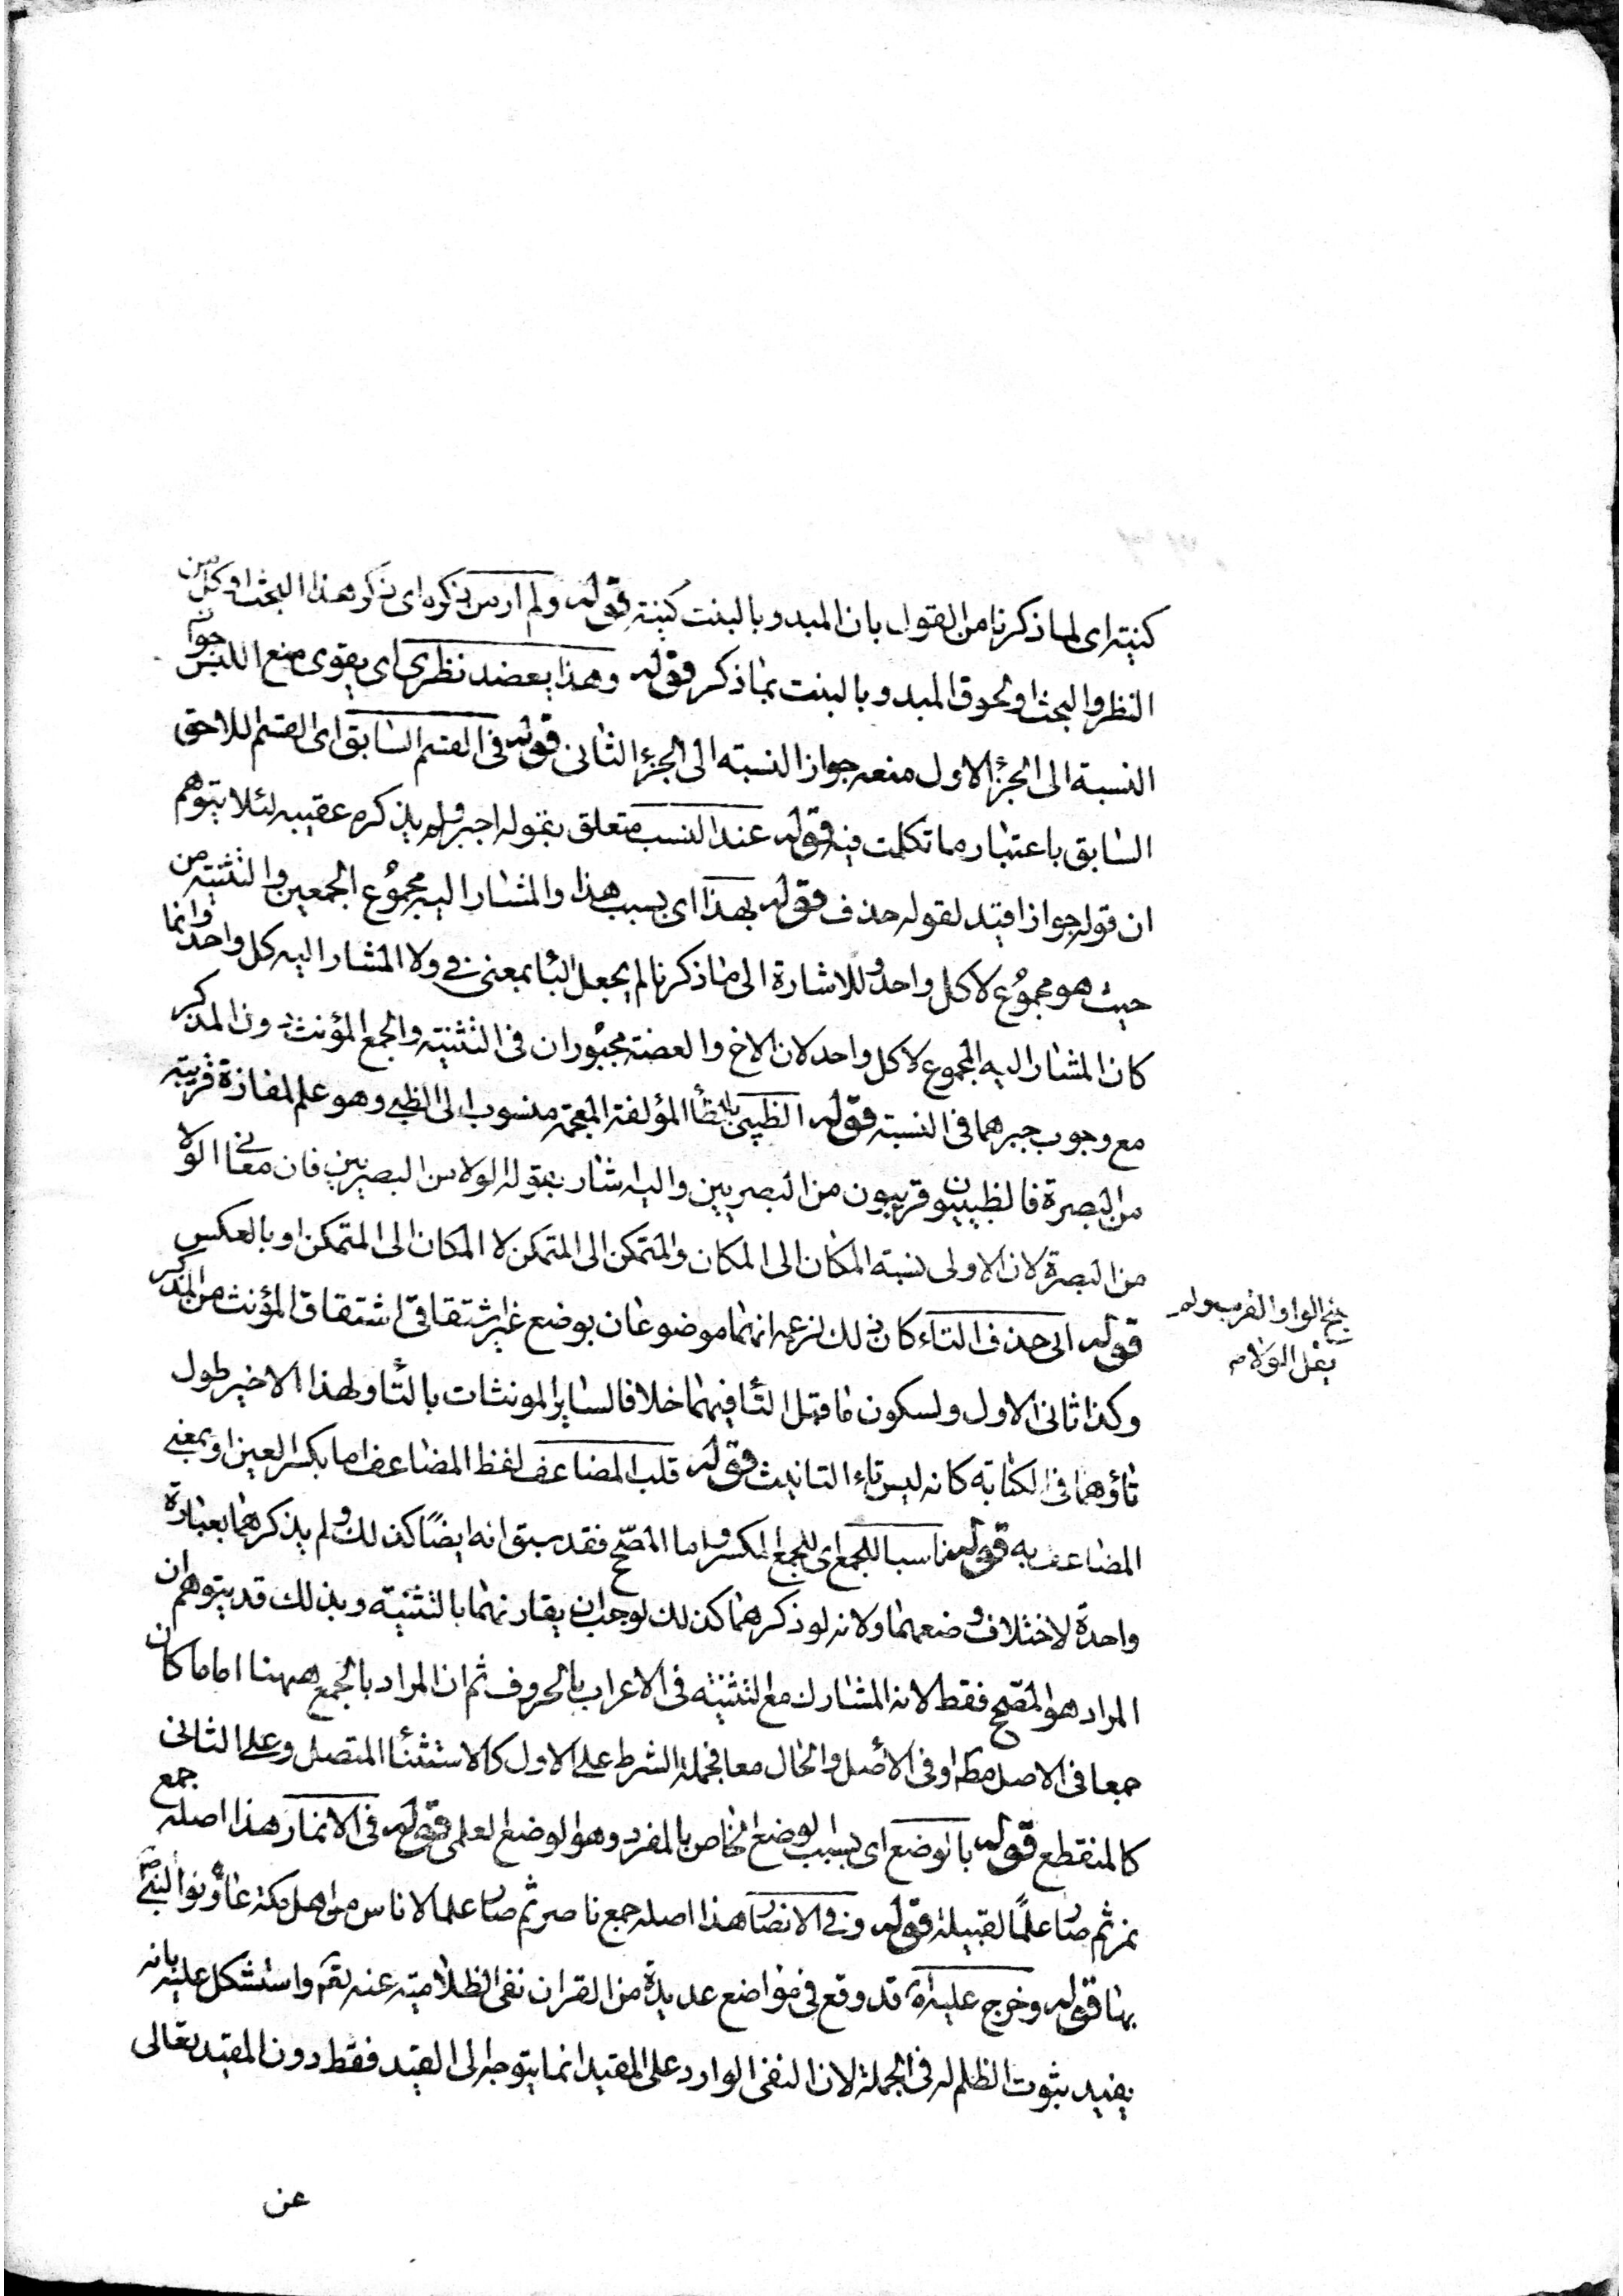 كنيته اى لما ذكرنا من القول بان المبدو بالبنت كنية قوله ولم ار من ذكره اى ذكر هذا البحث او كل من
النظر والبحث او لحوق المبدو بالبنت بما ذكر قوله وهذا يعضد نظرى اى يقوى منع اللبس جواز
النسبة الى الجزء الاول منعه جواز النسبة الى الجزء الثانى قوله فى القسم السابق اى القسم اللاحق
السابق باعتبار ما تكلمت فيه قوله عند النسب متعلق بقوله اجبر ولم يذكره عقيبه لئلا يتوهم
ان قوله جوازا قيد لقوله حذف قوله بهذا اى بسبب هذا والمشار اليه مجموع الجمعين والتثنية من
حيث هو مجموع لا كل واحد وللاشارة الى ما ذكرنا لم يجعل الباء بمعنى فى ولا المشار اليه كل واحد وانما
كان المشار اليه المجموع لا كل واحد لان الاخ والعضة مجبوران فى التثنية والجمع المؤنث دون المذكر
مع وجوب جبرهما فى النسبة قوله الظبيى بالظاء المؤلفة المعجمة منسوب الى الظبى وهو علم لمفازة قريبة
من البصرة فالظبييون قريبون من البصريين واليه اشار بقوله الولا من البصريين فان معنا الولا
من البصرة لان الاولى نسبة المكان الى المكان والمتمكن الى المتمكن لا المكان الى المتمكن او بالعكس
قوله الى حذف التاء كان ذلك لزعمه انهما موضوعان بوضع غير اشتقاقى اشتقاق المؤنث من المذكر
وكذا ثانى الاول ولسكون ما قبل التاء فيهما خلافا لساير المونثات بالتاء ولهذا الاخير طول
تاؤهما فى الكتابة كانه ليس تاء التانيث قوله قلب المضاعف لفظ المضاعف اما بكسر العين او بمعنى
المضاعف به قوله مناسبا للجمع اى للجمع المكسر واما المصحح فقد سبق انه ايضًا كذلك ولم يذكرهما بعبارة
واحدة لاختلاف وضعهما ولانه لو ذكرهما كذلك لوجب ان يقارنهما بالتثنية وبذلك قد يتوهم ان
المراد هو المصحح فقط لانه المشارك مع التثنية فى الاعراب بالحروف ثم ان المراد بالجمع ههنا اما ما كان
جمعا فى الاصل مطم او فى الاصل والحال معا فجملة الشرط على الاول كالاستثناء المتصل وعلى الثانى
كالمنقطع قوله بالوضع اى بسبب الوضع الخاص بالمفرد وهو الوضع العلمى قوله فى الانمار هذا اصله جمع
نمر ثم صار علمًا لقبيلة قوله وفى الانصار هذا اصله جمع ناصر ثم صار علما لاناس من اهل مكة عاونوا النبى ص
بها قوله وخرج عليه اه قد وقع فى مواضع عديدة من القران نفى الظلامية عنه تعم واستشكل عليه بانه
يفيد ثبوت الظلم له فى الجملة لان النفى الوارد على المقيد انما يتوجه الى القيد فقط دون المقيد تعالى
عن